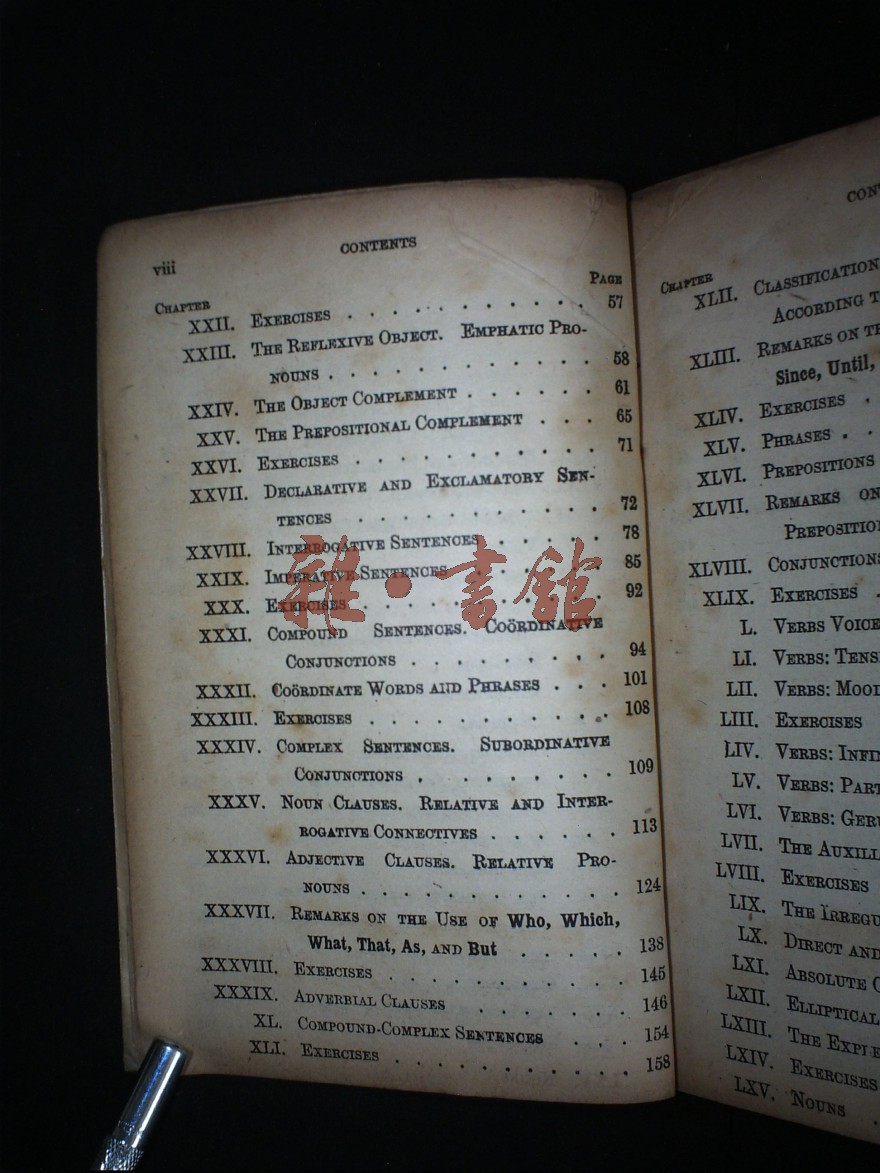 viii
CONTENTS
CHAPTER PAGE
XXII. EXERCISES . . . . . . . . . . . 57
XXIII. THE REFLEXIVE OBJECT. EMPHATIC PRO-
NOUNS . . . . . . . . . . . . 58
XXIV. THE OBJECT COMPLEMENT . . . . . . 61
XXV. THE PREPOSITIONAL COMPLEMENT . . . 65
XXVI. EXERCISES . . . . . . . . . . . 71
XXVII. DECLARATIVE AND EXCLAMATORY SEN-
TENCES . . . . . . . . . . . 72
XXVIII. INTERROGATIVE SENTENCES . . . . . 78
XXIX. IMPERATIVE SENTENCES . . . . . . 85
XXX. EXERCISES . . . . . . . . . . . 92
XXXI. COMPOUND SENTENCES. COÖRDINATIVE
CONJUNCTIONS . . . . . . . . . 94
XXXII. COÖRDINATE WORDS AND PHRASES . . . 101
XXXIII. EXERCISES . . . . . . . . . . . 108
XXXIV. COMPLEX SENTENCES. SUBORDINATIVE
CONJUNCTIONS . . . . . . . . 109
XXXV. NOUN CLAUSES. RELATIVE AND INTER-
ROGATIVE CONNECTIVES . . . . . . 113
XXXVI. ADJECTIVE CLAUSES. RELATIVE PRO-
NOUNS . . . . . . . . . . . 124
XXXVII. REMARKS ON THE USE OF Who, Which,
What, That, As, AND But . . . . . 138
XXXVIII. EXERCISES . . . . . . . . . . . 145
XXXIX. ADVERBIAL CLAUSES . . . . . . . 146
XL. COMPOUND-COMPLEX SENTENCES . . . 154
XLI. EXERCISES . . . . . . . . . . . 158
雜·書館
CHAPTER
XLII. CLASSIFICATION
ACCORDING
XLIII. REMARKS ON
Since, Until,
XLIV. EXERCISES .
XLV. PHRASES . .
XLVI. PREPOSITIONS
XLVII. REMARKS ON
XLVIII. CONJUNCTIONS
XLIX. EXERCISES .
L. VERBS VOICE
LI. VERBS:
LII. VERBS: MOOD
LIII. EXERCISES
LIV. VERBS:
LV. VERBS:
LVI. VERBS:
LVII. THE
LVIII. EXERCISES
LIX. THE
LX. DIRECT AND
LXI. ABSOLUTE
LXII. ELLIPTICAL
LXIII. THE
LXIV. EXERCISES
LXV. NOUNS .